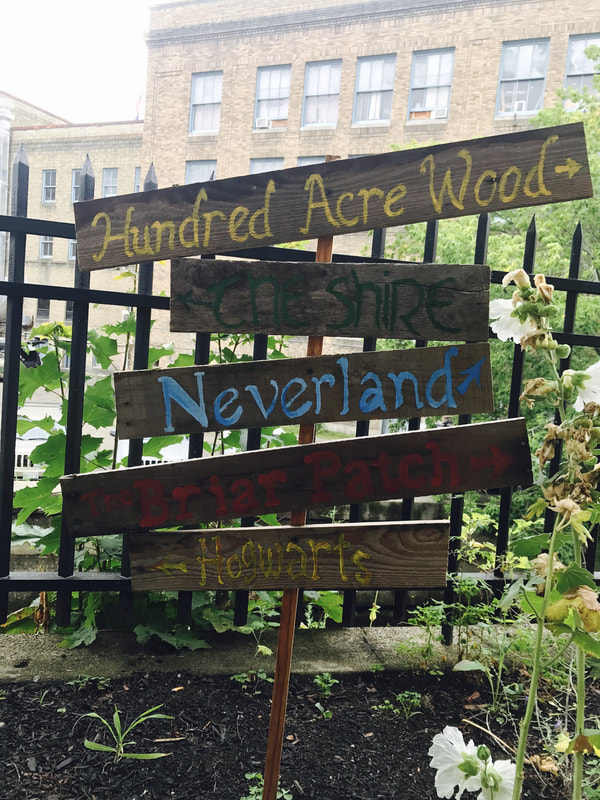 Hundred Acre Wood →
← THE SHIRE
Neverland ↗
The Briar Patch →
← Hogwarts